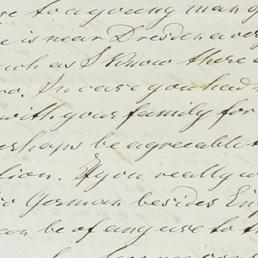 se to a young man g
e is near Dresden a ver
such as I know there a
In case you had n
with your family for
erhaps be agreeable t
tion. If you really w
German besides En
can be of any use to th